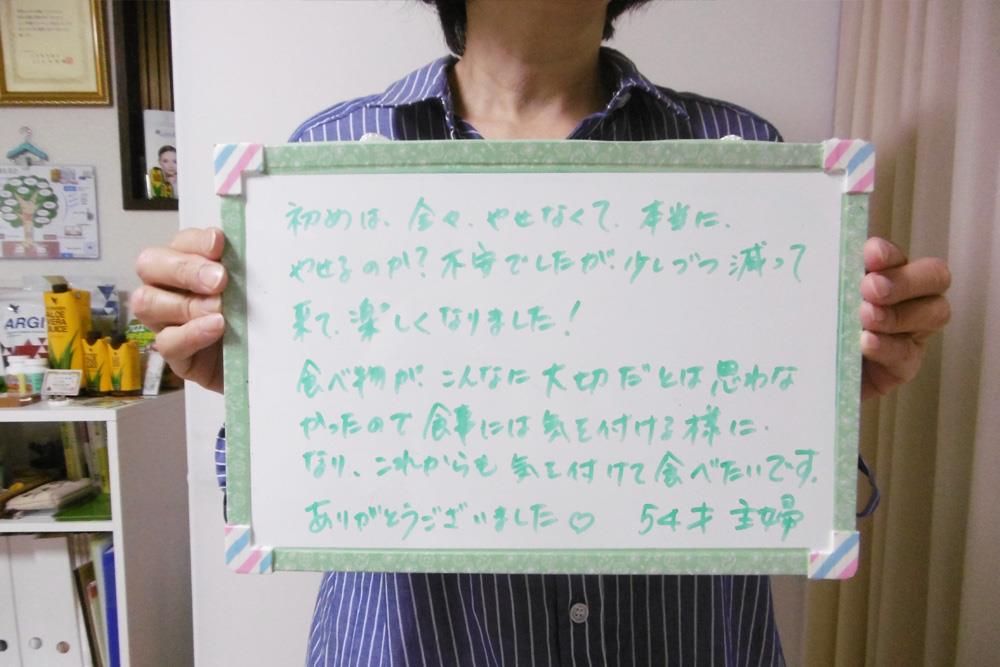 初めは、全々、やせなくて、本当に、
やせるのか？不安でしたが、少しづつ減って
来て、楽しくなりました！
食べ物が、こんなに大切だとは思わな
かったので食事には気を付ける様に、
なり、これからも気を付けて食べたいです。
ありがとうございました♡ 54才 主婦
ARGI
ALOE
VERA
JUICE